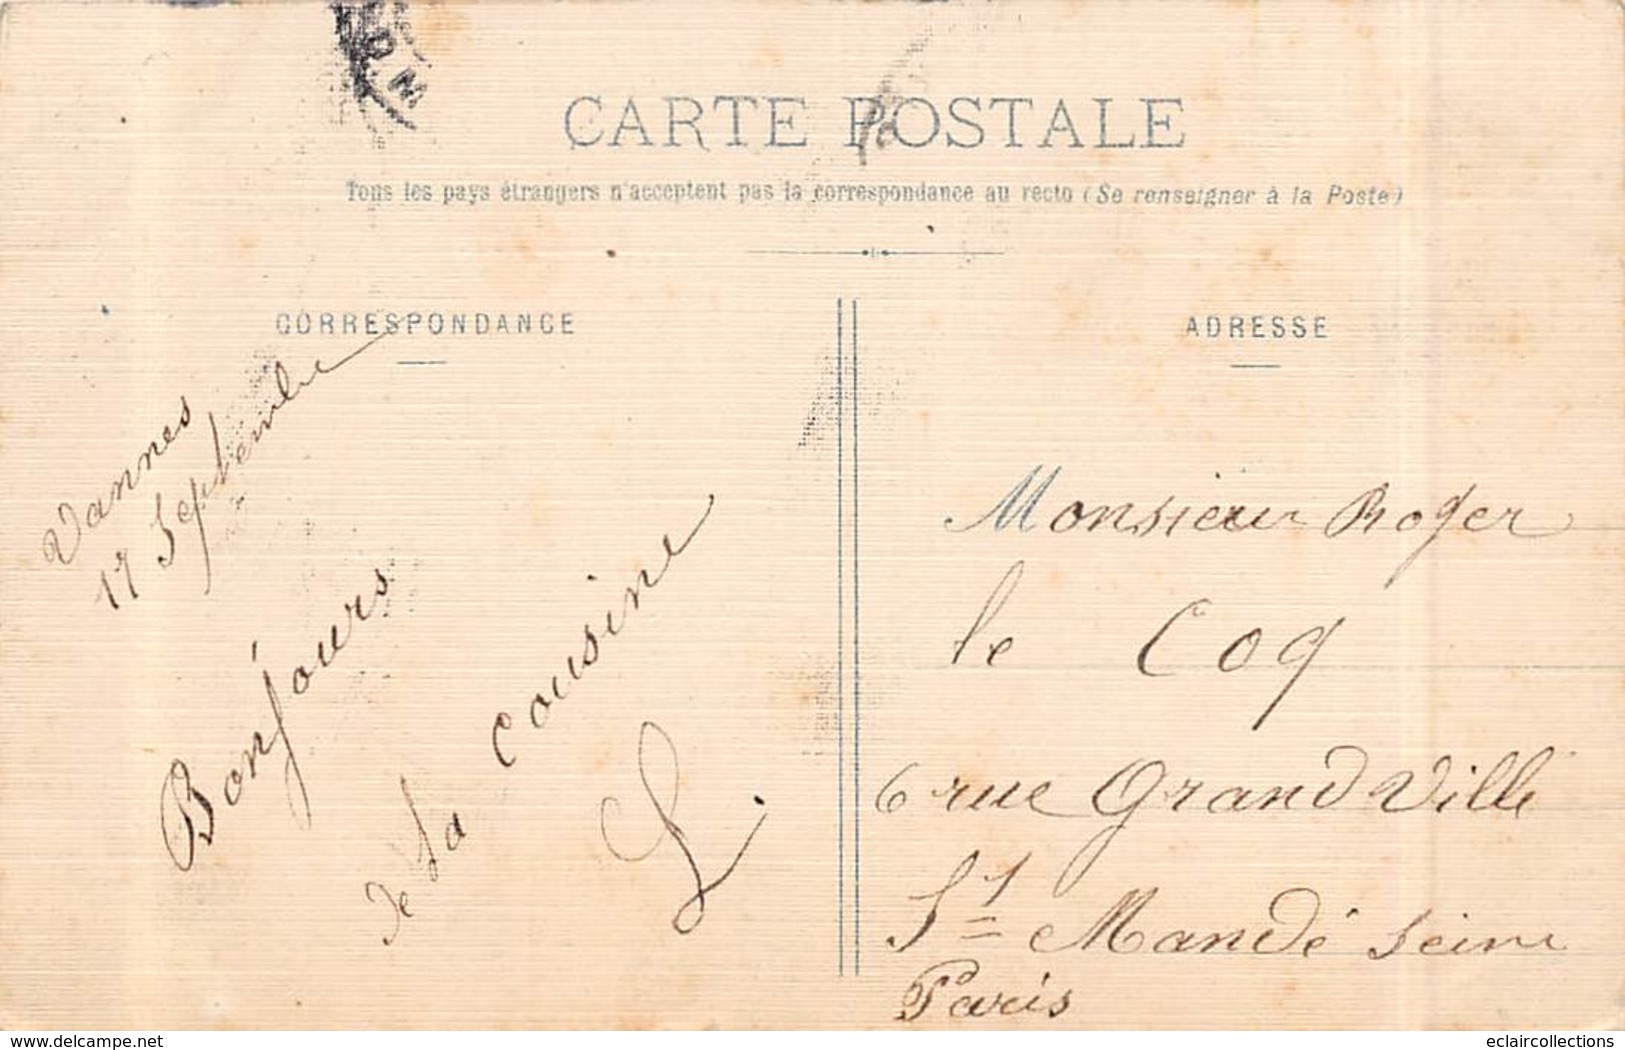 CARTE POSTALE
Tous les pays étrangers n'acceptent pas la correspondance au recto (Se renseigner à la Poste)
CORRESPONDANCE
Vannes
17 Septembre
Bonjours
de Sa cousine
L.
ADRESSE
Monsieur Roger
le Coq
6 rue GrandVille
St Mandé Seine
Paris
www.delcampe.net
eclaircollections